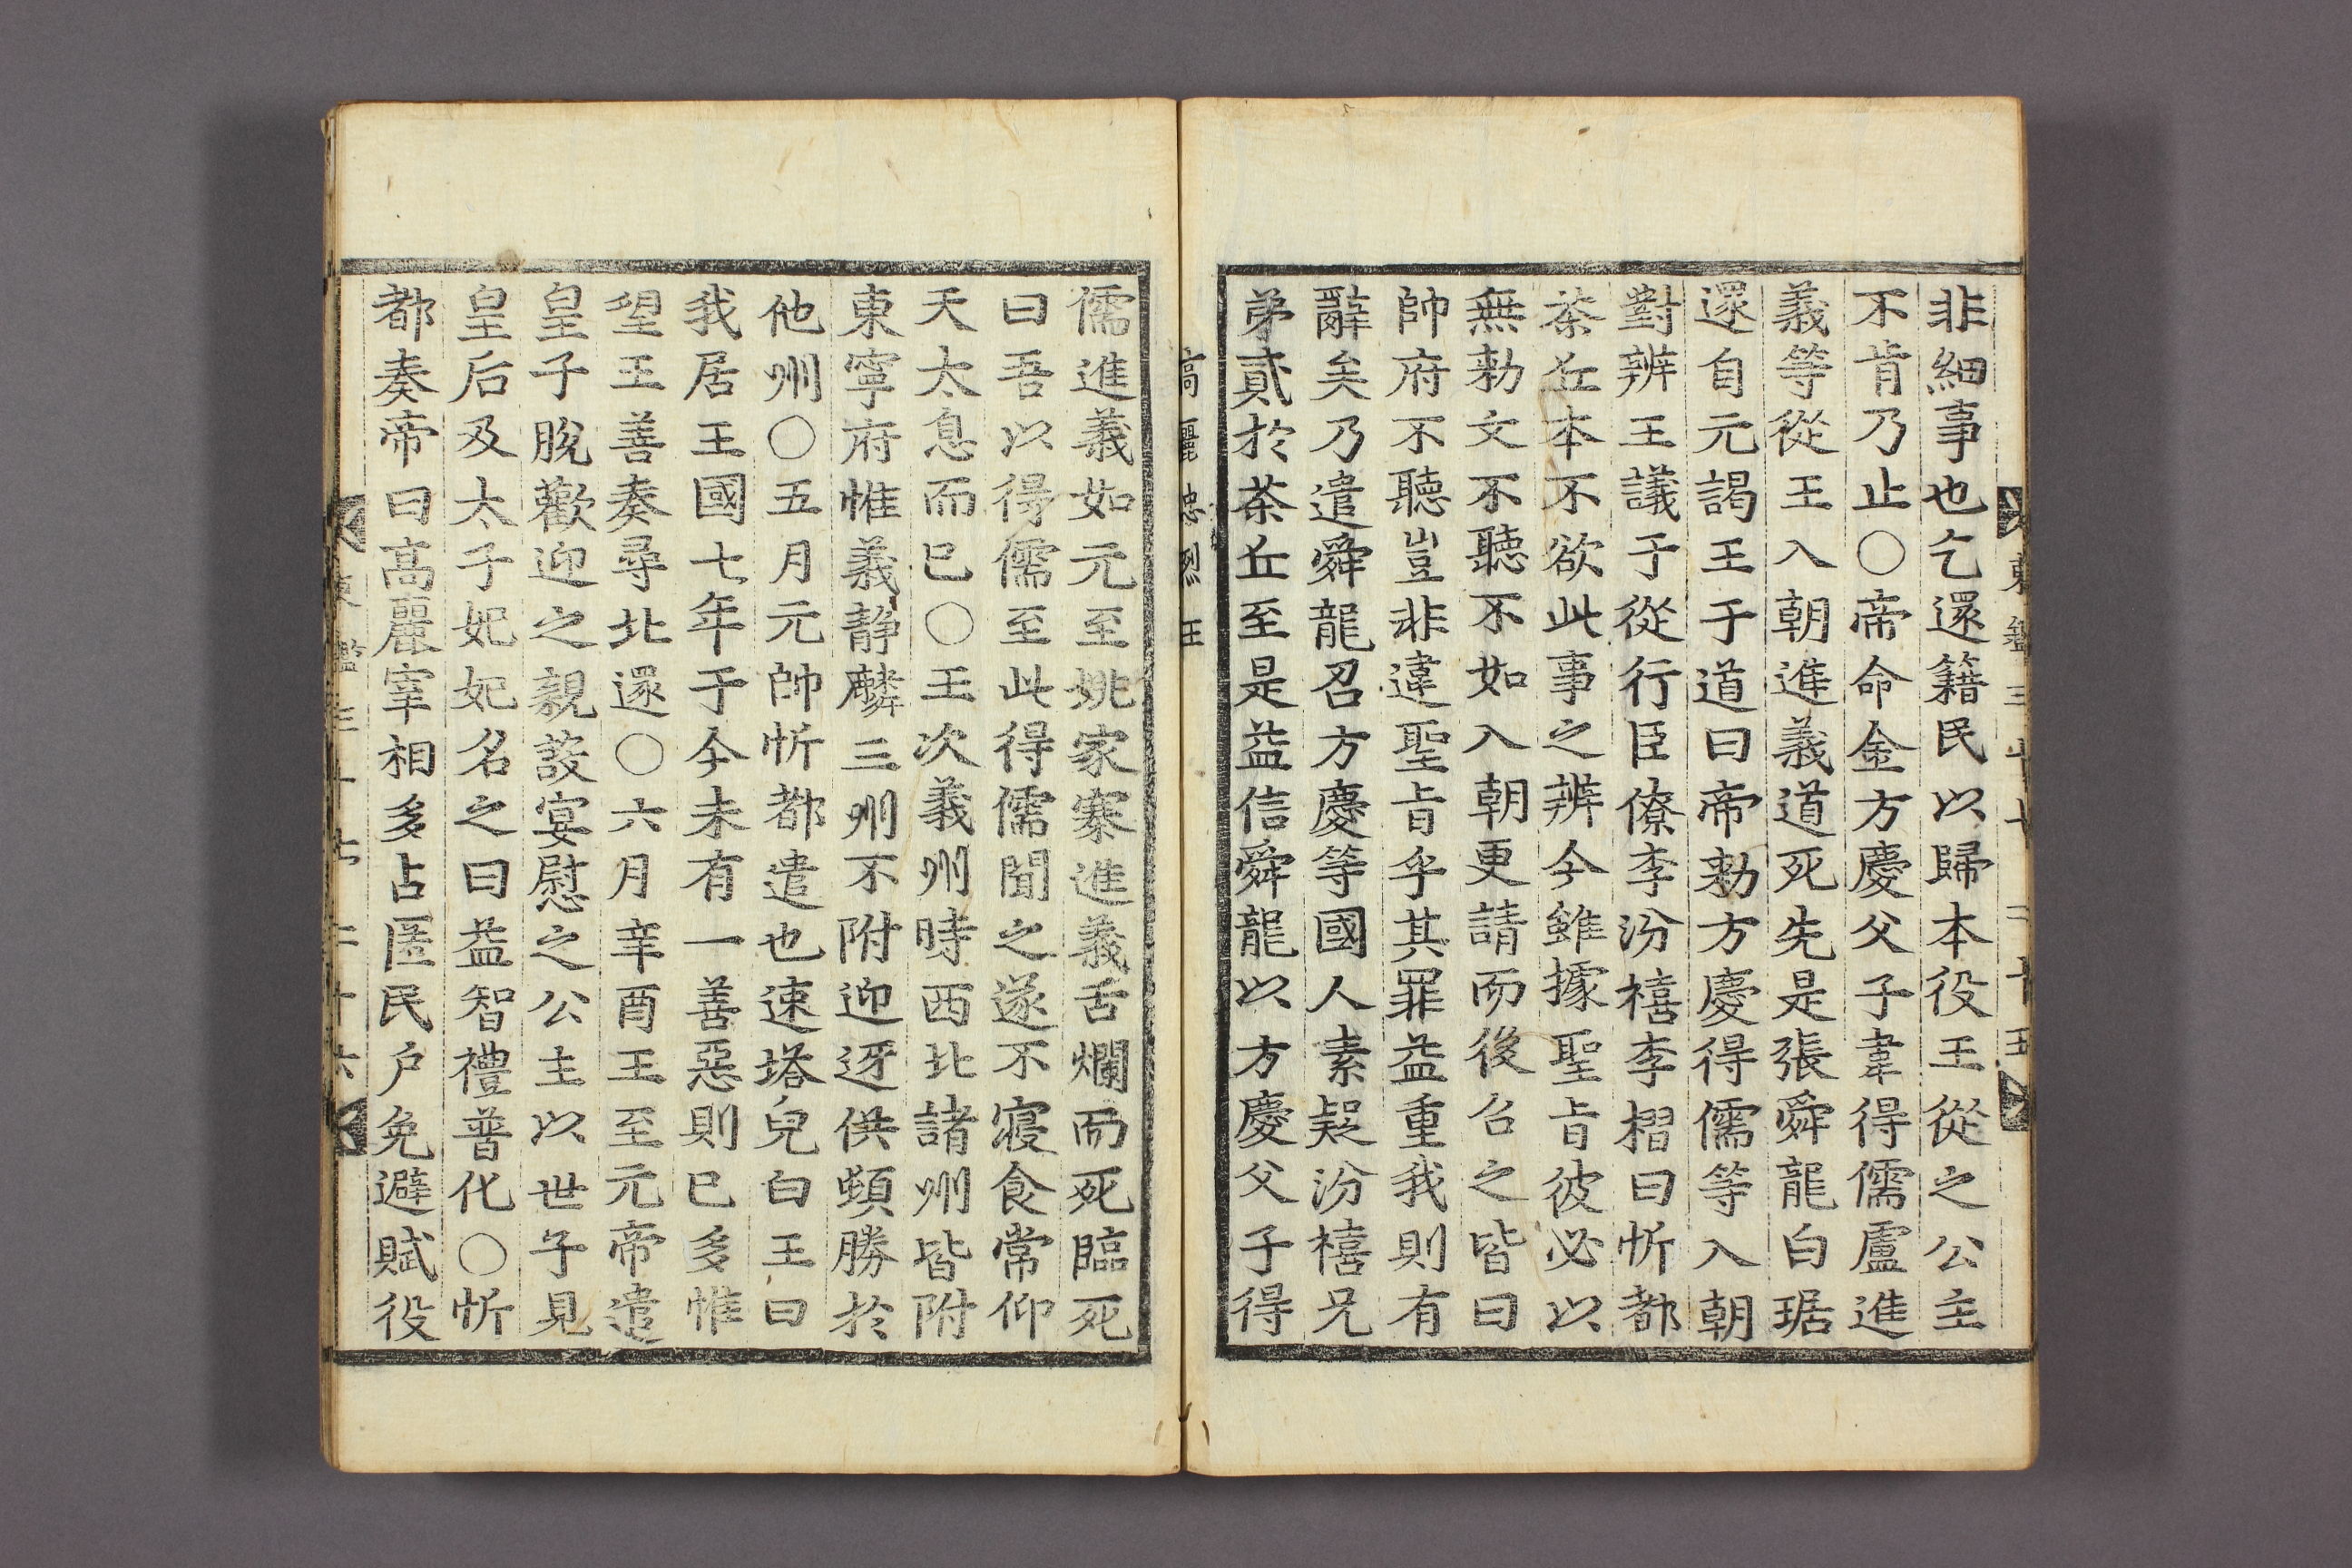 非細事也乞還籍民以歸本役王從之公主
不肯乃止〇帝命金方慶父子韋得儒盧進
義等從王入朝進義道死先是張舜龍白琚
還自元謁王于道曰帝勑方慶得儒等入朝
對辨王議于從行臣僚李汾禧李槢曰忻都
茶丘本不欲此事之辨今雖據聖旨彼必以
無勑文不聽不如入朝更請而後召之皆曰
帥府不聽豈非違聖旨乎其罪益重我則有
辭矣乃遣舜龍召方慶等國人素疑汾禧兄
弟貳於茶丘至是益信舜龍以方慶父子得
高麗忠烈王
儒進義如元至姚家寨進義舌爛而死臨死
曰吾以得儒至此得儒聞之遂不寢食常仰
天太息而已〇王次義州時西北諸州皆附
東寧府惟義靜麟三州不附迎迓供頓勝於
他州〇五月元帥忻都遣也速塔兒白王曰
我居王國七年于今未有一善惡則已多惟
望王善奏尋北還〇六月辛酉王至元帝遣
皇子脫歡迎之親設宴慰之公主以世子見
皇后及太子妃妃名之曰益智禮普化〇忻
都奏帝曰高麗宰相多占匿民戶免避賦役